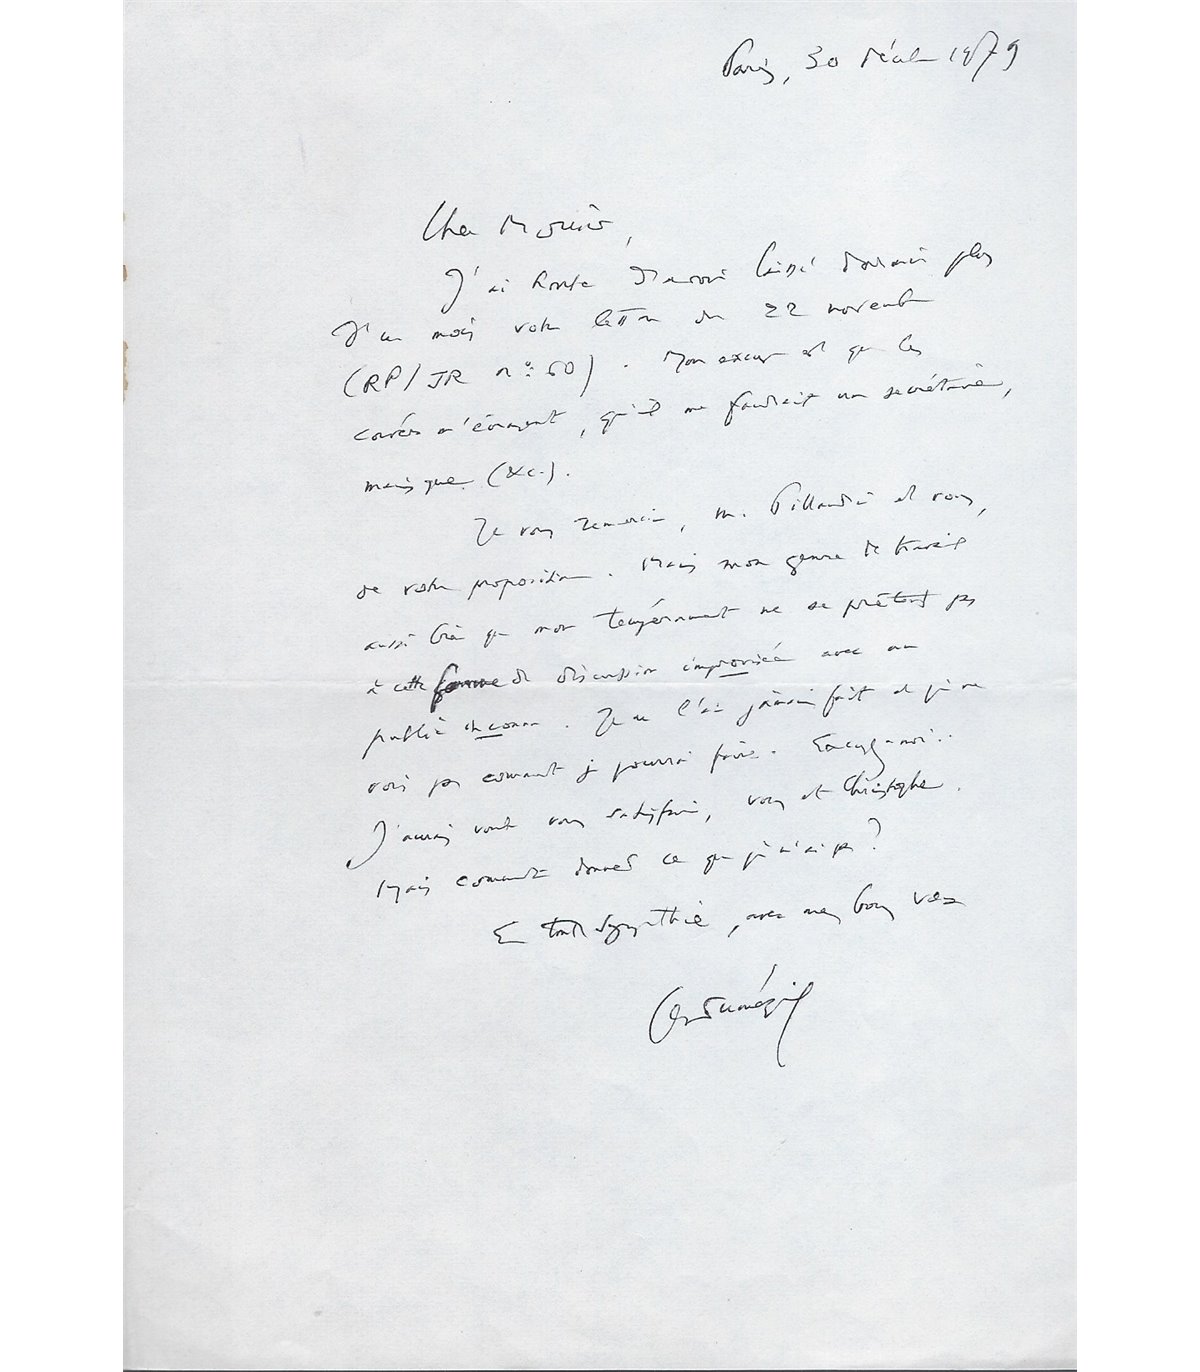 Paris, 30 décembre 1979
Cher Monsieur,
J'ai honte d'avoir laissé dormir plus
d'un mois votre lettre du 22 novembre
(RP/JR n° 60). Mon excuse est que les
corvées m'écrasent, qu'il me faudrait un secrétaire,
mais que (&c.).
Je vous remercie, M. et vous,
de votre proposition. Mais mon genre de travail
aussi bien que mon tempérament ne se prêtent pas
à cette forme de discussion improvisée avec un
public inconnu. Je ne l'ai jamais fait et je ne
vois pas comment je pourrai faire. Excusez-moi..
J'aurais voulu vous satisfaire, vous et Christophe.
Mais comment donner ce que je n'ai pas?
En toute sympathie, avec mes bons vœux
Dumézil